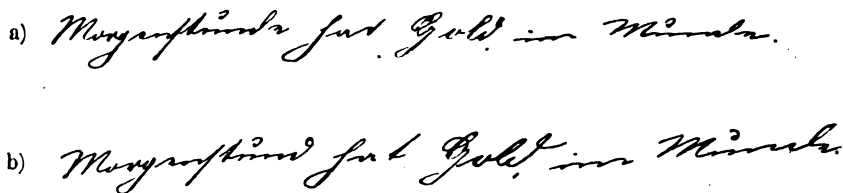 a) Morgenstunde hat Gold im Munde.
b) Morgenstund hat Gold im Munde.